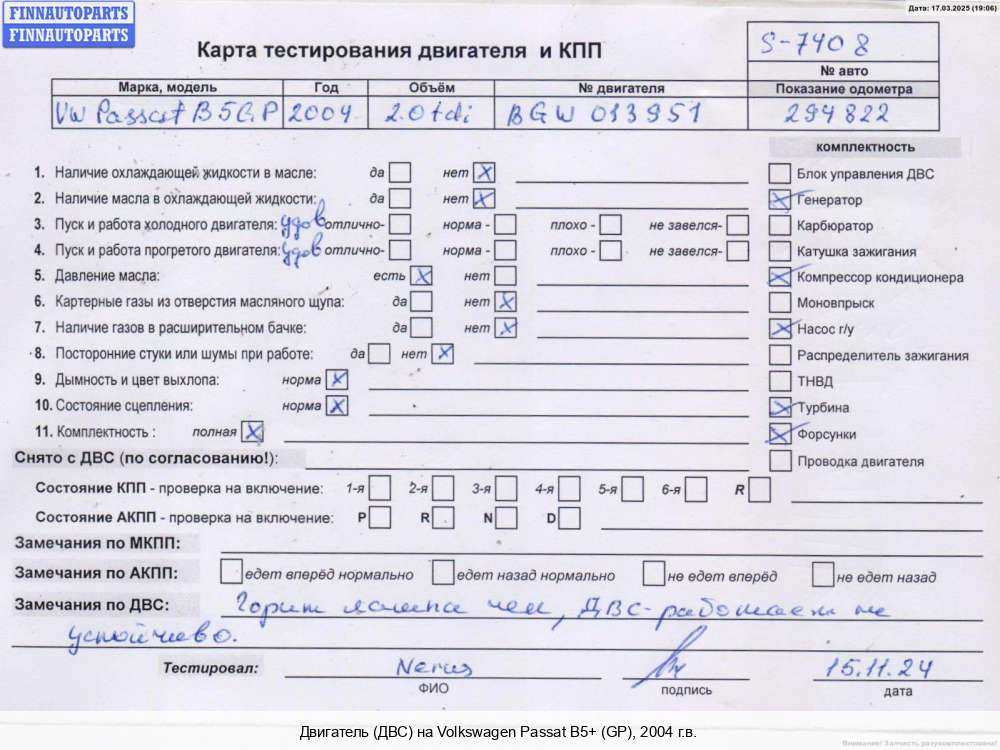 FINNAUTOPARTS
FINNAUTOPARTS
Дата: 17.03.2025 (19:06)
Карта тестирования двигателя и КПП
S-7408
№ авто
Марка, модель Год Объём № двигателя Показание одометра
VW Passat B5GP 2004 2.0tdi BGW 013951 294822
комплектность
1. Наличие охлаждающей жидкости в масле: да нет X Блок управления ДВС
2. Наличие масла в охлаждающей жидкости: да нет X X Генератор
3. Пуск и работа холодного двигателя: удов отлично- норма - плохо - не завелся- Карбюратор
4. Пуск и работа прогретого двигателя: удов отлично- норма - плохо - не завелся- Катушка зажигания
5. Давление масла: есть X нет X Компрессор кондиционера
6. Картерные газы из отверстия масляного щупа: да нет X Моновпрыск
7. Наличие газов в расширительном бачке: да нет X X Насос г/у
8. Посторонние стуки или шумы при работе: да нет X Распределитель зажигания
9. Дымность и цвет выхлопа: норма X ТНВД
10. Состояние сцепления: норма X X Турбина
11. Комплектность : полная X X Форсунки
Снято с ДВС (по согласованию!): Проводка двигателя
Состояние КПП - проверка на включение: 1-я 2-я 3-я 4-я 5-я 6-я R
Состояние АКПП - проверка на включение: P R N D
Замечания по МКПП:
Замечания по АКПП: едет вперёд нормально едет назад нормально не едет вперёд не едет назад
Замечания по ДВС: Горит лампа чек, ДВС-работает не
устойчиво.
Тестировал: Nerus 15.11.24
ФИО подпись дата
Двигатель (ДВС) на Volkswagen Passat B5+ (GP), 2004 г.в.
Внимание! Запчасть разукомплектована!